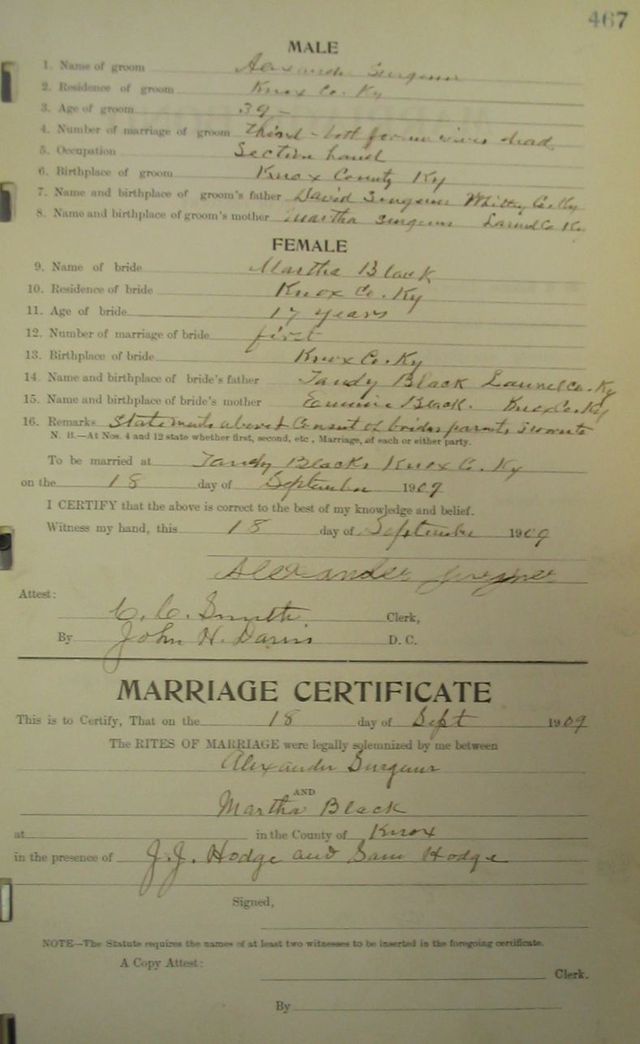 467
MALE
1. Name of groom Alexander Surgener
2. Residence of groom Knox Co. Ky
3. Age of groom 39 -
4. Number of marriage of groom third - both former wives dead
5. Occupation Section hand
6. Birthplace of groom Knox County Ky
7. Name and birthplace of groom's father David Surgener Whitley Co. Ky
8. Name and birthplace of groom's mother Martha Surgener Laurel Co. Ky
FEMALE
9. Name of bride Martha Black
10. Residence of bride Knox Co. Ky
11. Age of bride 17 years
12. Number of marriage of bride first
13. Birthplace of bride Knox Co. Ky
14 Name and birthplace of bride's father Tandy Black Laurel Co. Ky
15. Name and birthplace of bride's mother Black. Knox Co. Ky
16. Remarks Statements above & Consent of brides parents
N. B.—At Nos. 4 and 12 state whether first, second, etc, Marriage, of each or either party.
To be married at Tandy Blacks Knox Co. Ky
on the 18 day of September 1909
I CERTIFY that the above is correct to the best of my knowledge and belief.
Witness my hand, this 18 day of September 1909
Alexander Surgener
Attest:
C. C. Smith Clerk,
By John H. Davis D. C.
MARRIAGE CERTIFICATE
This is to Certify, That on the 18 day of Sept 1909
The RITES OF MARRIAGE were legally solemnized by me between
Alexander Surgener
AND
Martha Black
at in the County of Knox
in the presence of J. J. Hodge and Sam Hodge
Signed,
NOTE—The Statute requires the names of at least two witnesses to be inserted in the foregoing certificate.
A Copy Attest:
Clerk.
By